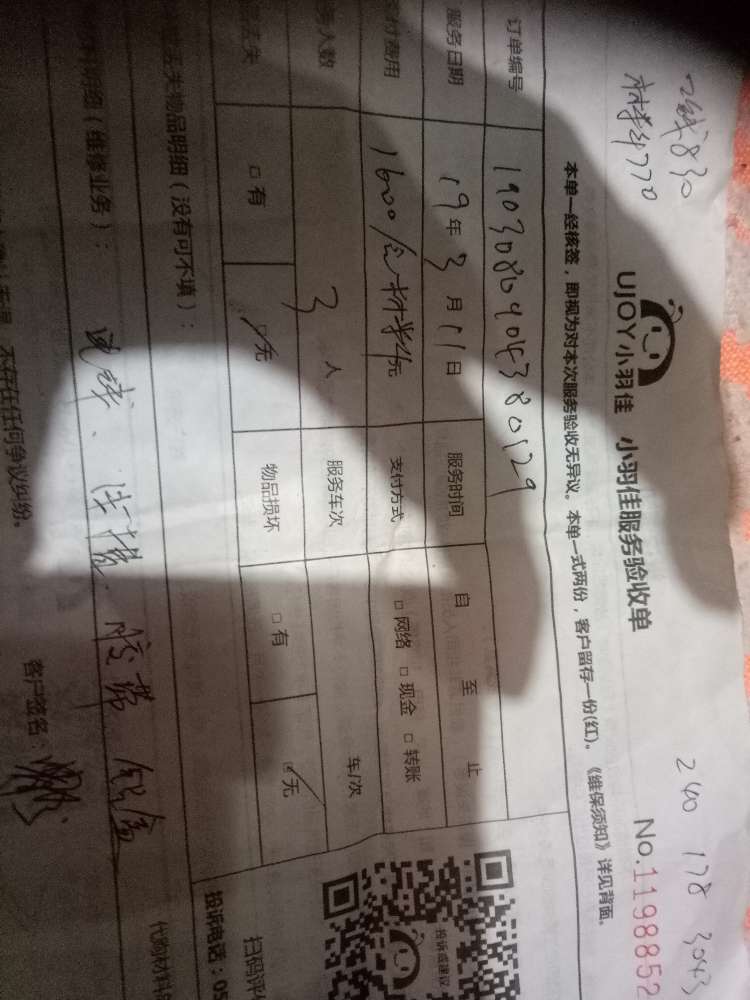 工钱830
材料770
240 178 3043
UJOY小羽佳 小羽佳服务验收单
No.1198852
本单一经核签，即视为对本次服务验收无异议。本单一式两份，客户留存一份(红)。《维保须知》详见背面。
订单编号
服务日期 19年3月11日 服务时间 自 至 止
付费用 1600/含材料元 支付方式 □网络 □现金 □转账
人数 3人 服务车次 车/次
丢失 □有 ☑无 物品损坏 □有 ☑无
丢失物品明细（没有可不填）：
明细（维修业务）：
胶带
不存在任何争议纠纷。
客户签名：
投诉或建议
扫码评
投诉电话：05
代购材料